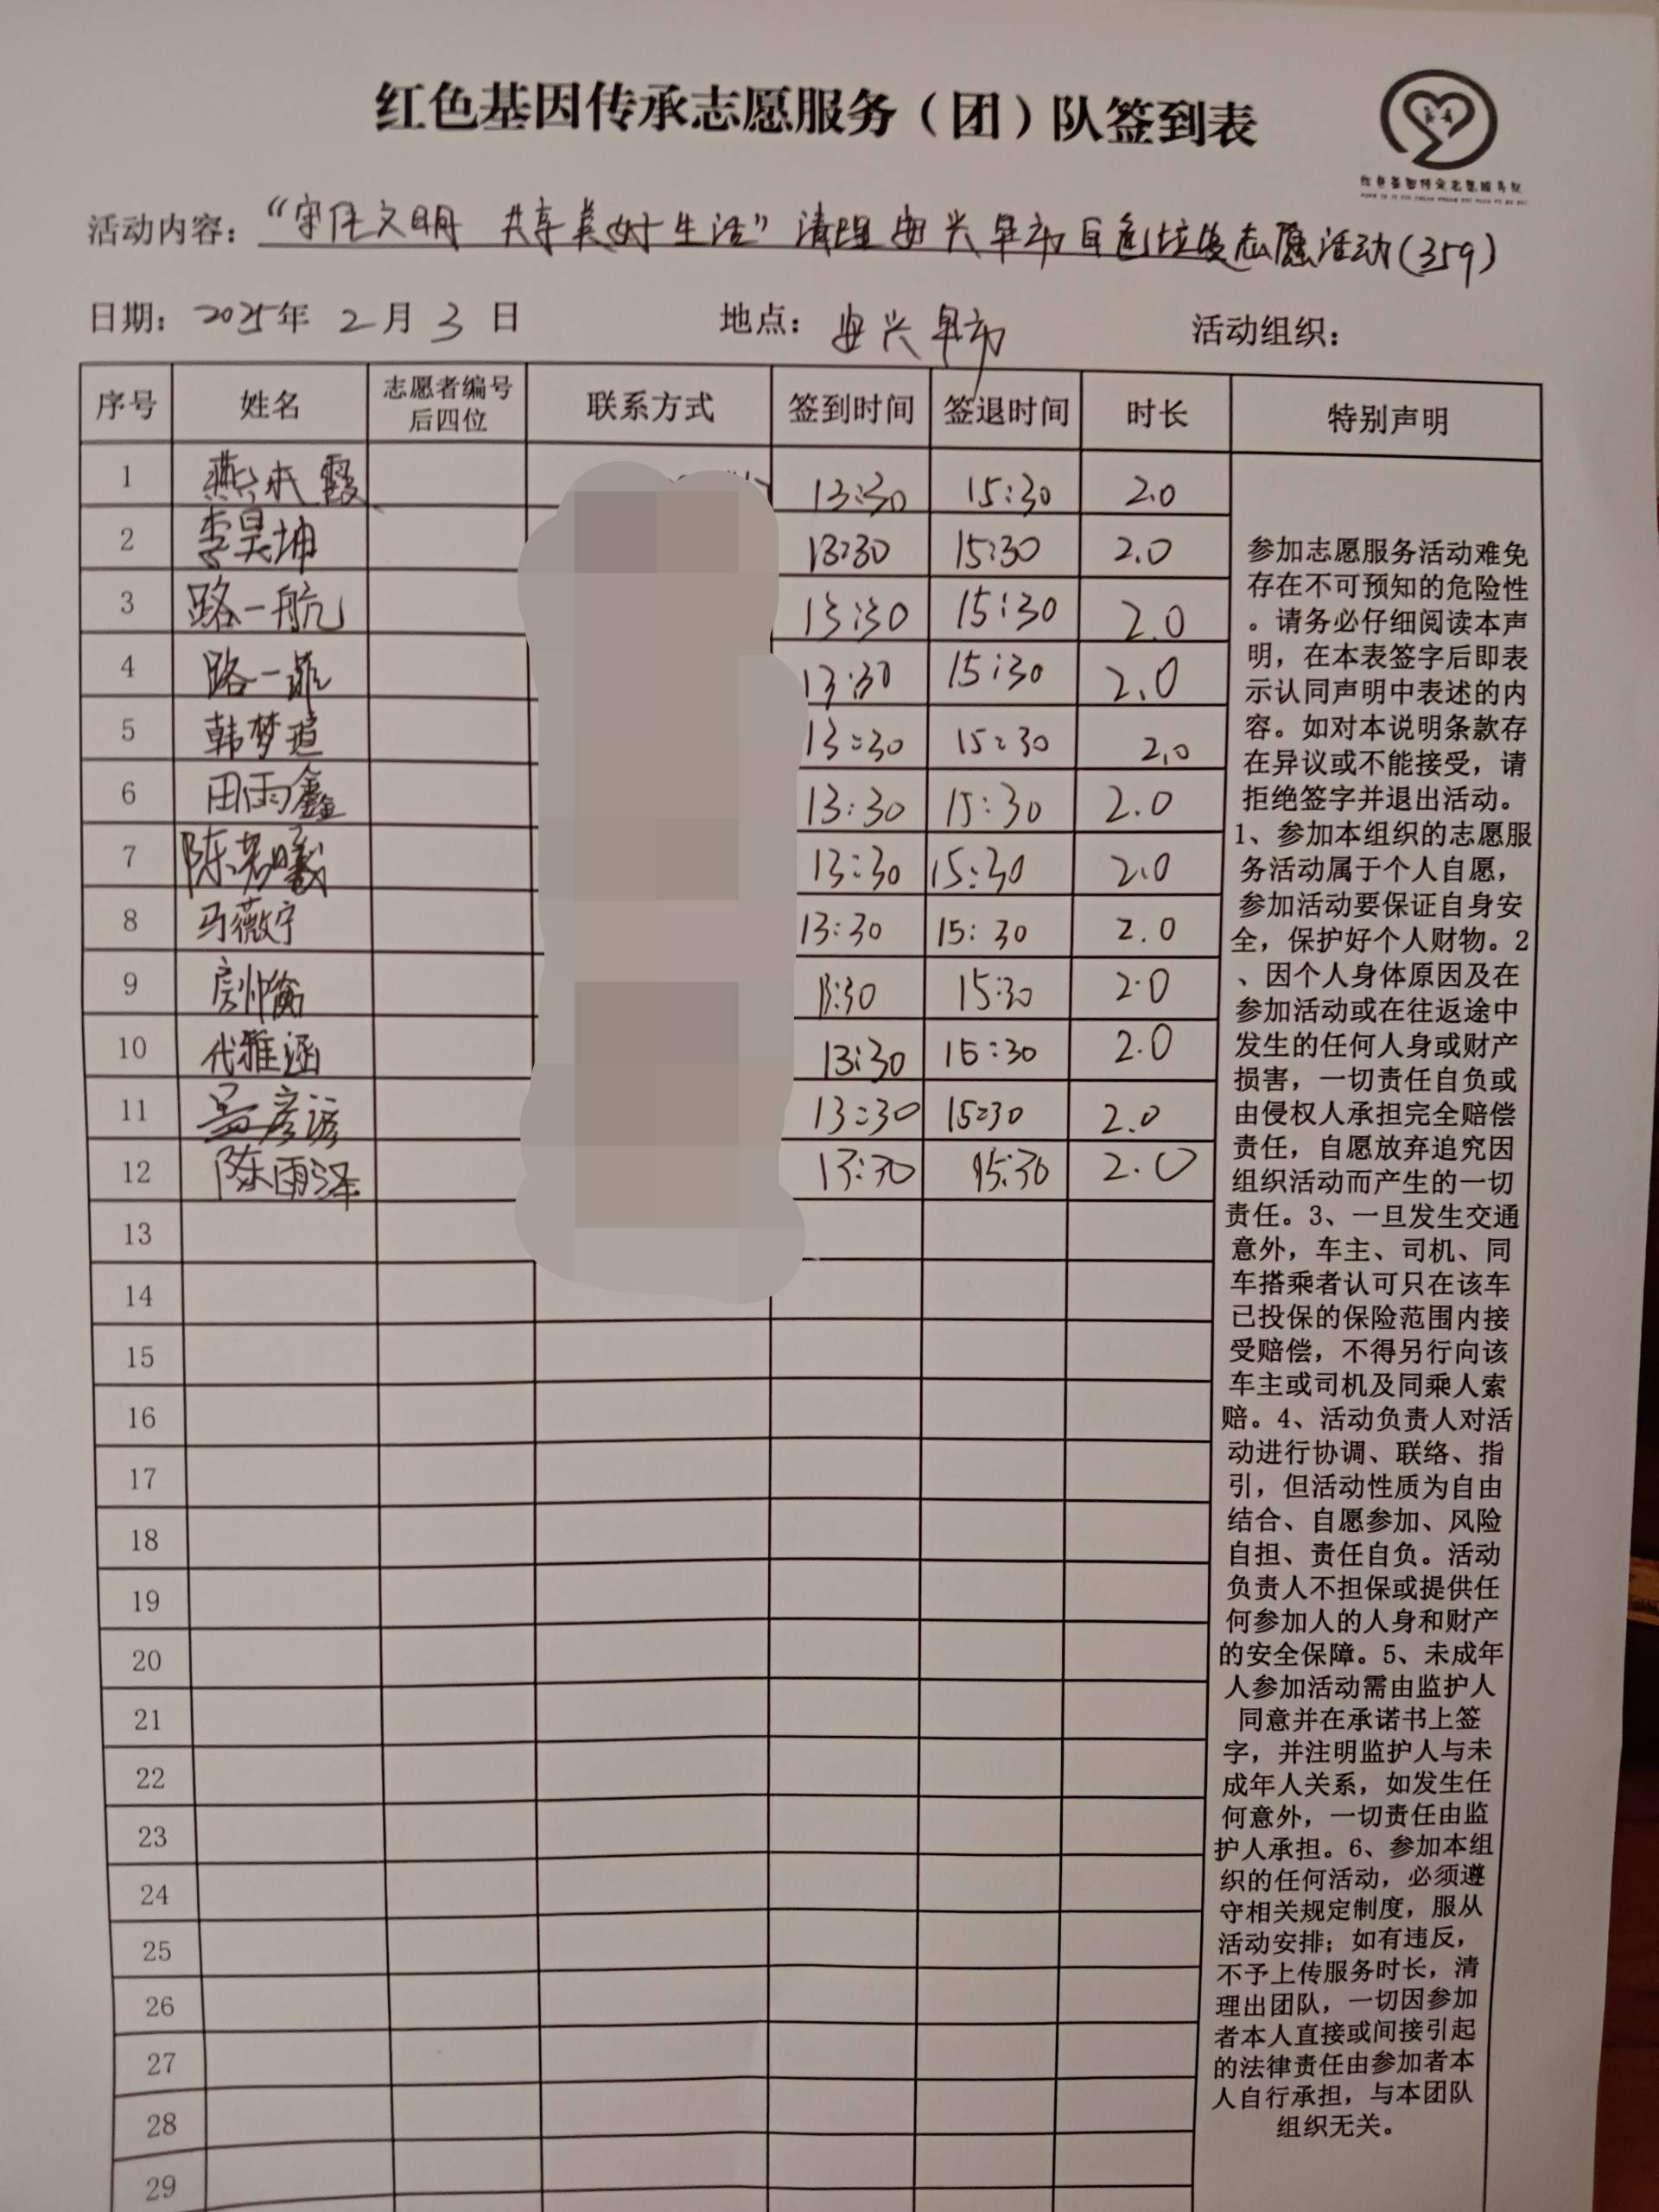 红色基因传承志愿服务（团）队签到表
红色基因传承志愿服务队
活动内容：“守住文明 共享美好生活”清理安兴早市白色垃圾志愿活动(359)
日期：2025年2月3日 地点：安兴早市 活动组织：
序号 姓名 志愿者编号后四位 联系方式 签到时间 签退时间 时长 特别声明
1 燕 霞 13:30 15:30 2.0
2 李昊坤 13:30 15:30 2.0
3 路一航 13:30 15:30 2.0
4 路一菲 13:30 15:30 2.0
5 韩梦 13:30 15:30 2.0
6 田雨鑫 13:30 15:30 2.0
7 陈若曦 13:30 15:30 2.0
8 马薇宁 13:30 15:30 2.0
9 房 13:30 15:30 2.0
10 代雅涵 13:30 15:30 2.0
11 吴彦谚 13:30 15:30 2.0
12 陈雨泽 13:30 15:30 2.0
13
14
15
16
17
18
19
20
21
22
23
24
25
26
27
28
29
参加志愿服务活动难免
存在不可预知的危险性
。请务必仔细阅读本声
明，在本表签字后即表
示认同声明中表述的内
容。如对本说明条款存
在异议或不能接受，请
拒绝签字并退出活动。
1、参加本组织的志愿服
务活动属于个人自愿，
参加活动要保证自身安
全，保护好个人财物。2
、因个人身体原因及在
参加活动或在往返途中
发生的任何人身或财产
损害，一切责任自负或
由侵权人承担完全赔偿
责任，自愿放弃追究因
组织活动而产生的一切
责任。3、一旦发生交通
意外，车主、司机、同
车搭乘者认可只在该车
已投保的保险范围内接
受赔偿，不得另行向该
车主或司机及同乘人索
赔。4、活动负责人对活
动进行协调、联络、指
引，但活动性质为自由
结合、自愿参加、风险
自担、责任自负。活动
负责人不担保或提供任
何参加人的人身和财产
的安全保障。5、未成年
人参加活动需由监护人
同意并在承诺书上签
字，并注明监护人与未
成年人关系，如发生任
何意外，一切责任由监
护人承担。6、参加本组
织的任何活动，必须遵
守相关规定制度，服从
活动安排；如有违反，
不予上传服务时长，清
理出团队，一切因参加
者本人直接或间接引起
的法律责任由参加者本
人自行承担，与本团队
组织无关。